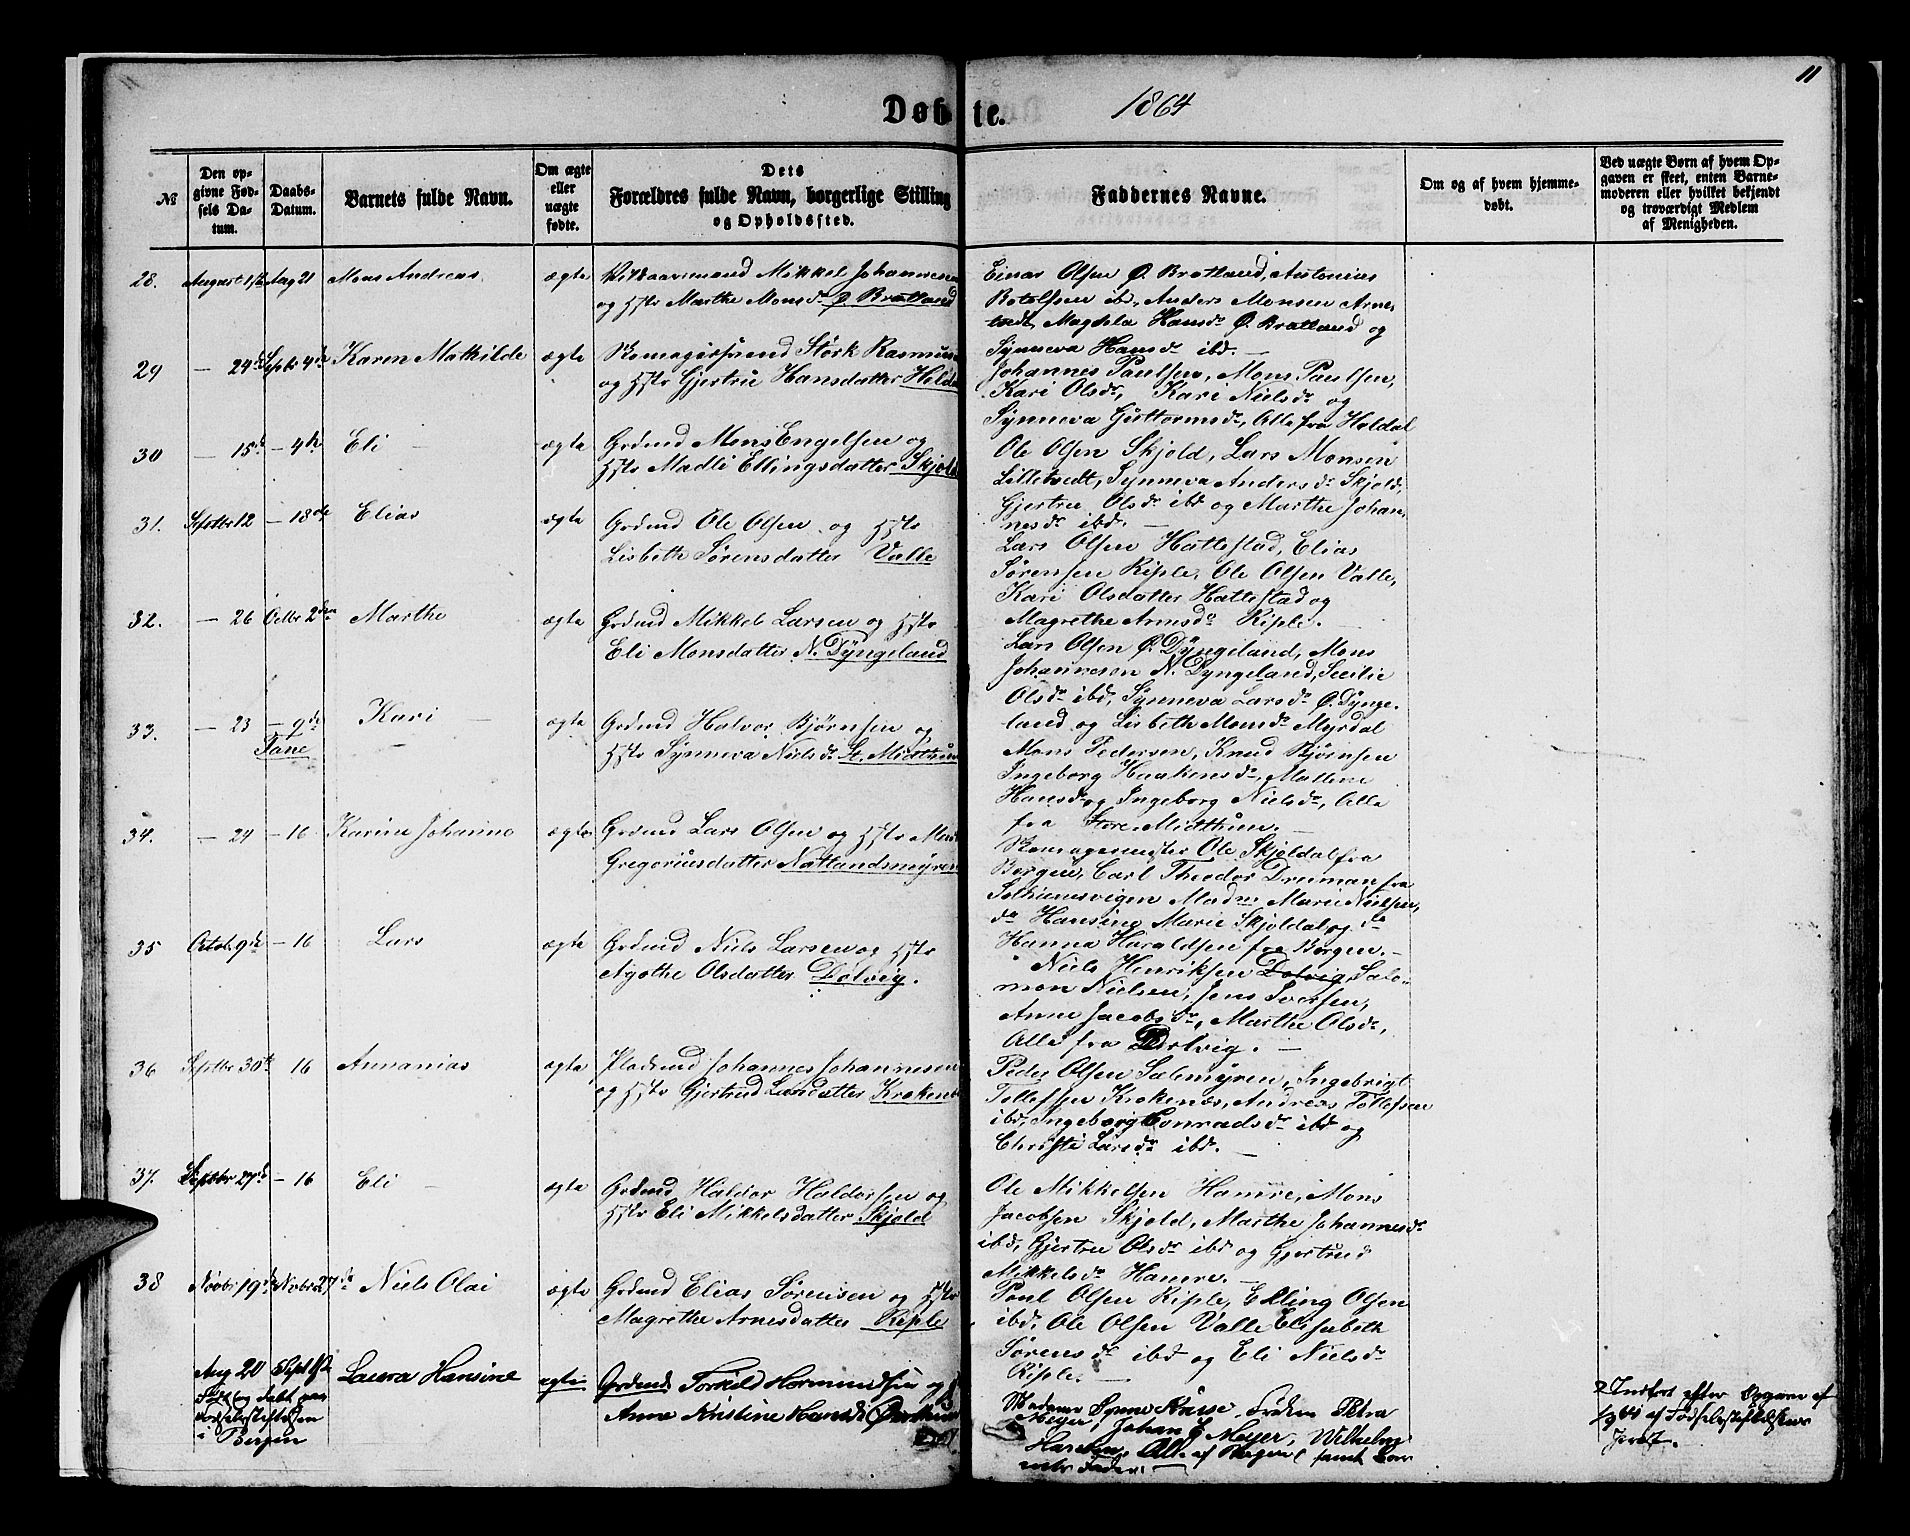 11
Døbte. 1864
№
Den opgivne Fødsels Datum.
Daabs-Datum.
Barnets fulde Navn.
Om ægte eller uægte fødte.
Dets Forældres fulde Navn, borgerlige Stilling og Opholdssted.
Faddernes Navne.
Om og af hvem hjemmedøbt.
Ved uægte Børn af hvem Opgaven er skeet, enten Barnemoderen eller hvilket bekjendt og troværdigt Medlem af Menigheden.
28. August Aug 21 Mons Andreas ægte
Mikkel Johannesen
og Hstr Marthe Monsdr Ø. Bratland
Einar Olsen Ø. Bratland, Antonius
Botolfsen ibd, Anders Monsen Arne-
tvedt, Magdela Hansdr Ø. Bratland og
Synneva Hansdr ibd. —
29 — 24de Septbr 4de Karen Mathilde ægte
Størk Rasmus
og Hstr Gjertrue Hansdatter
Johannes Paulsen, Mons Paulsen,
Kari Olsdr, Kari Nielsdr og
Synneva Guttormsdr, Alle fra Holdal
30 — 15de — 4de Eli ægte
Grdmd Mons Engelsen og
Hstr Madli Ellingsdatter Skjold
Ole Olsen Skjold, Lars Monsen
Lilletvedt, Synneva Andersdr Skjold,
Gjertrue Olsdr ibd og Marthe Johan-
nesdr ibd. —
31. Septbr 12 — 18de Elias ægte
Grdmd Ole Olsen og Hstr
Lisbeth Sørensdatter Valle
Lars Olsen Hattestad, Elias
Sørensen Riple, Ole Olsen Valle,
Kari Olsdatter Hattestad og
Magrethe Arnesdr Riple. —
32. — 26 Octbr 2den Marthe ægte
Grdmd Mikkel Larsen og Hstr
Eli Monsdatter N. Dyngeland
Lars Olsen Ø. Dyngeland, Mons
Johannesen N. Dyngeland, Secilie
Olsdr ibd, Synneva Larsdr Ø. Dynge-
land og Lisbeth Monsdr Myrdal
33. — 23 — 9de Fane Kari — ægte
Grdmd Halvor Bjørnsen og
Hstr Synneva Nielsdr St. Midthun
Mons Pedersen, Knud Bjørnsen
Ingeborg Haakensdr, Mallene
Hansdr og Ingeborg Nielsdr, Alle
fra Store Midthun. —
34. — 24 — 16 Karine Johanne ægte
Grdmd Lars Olsen og Hstr
Gregoriusdatter Natlandsmyren
Skomagermester Ole Skjoldal fra
Bergen, Carl Theodor Dreiman fra
Solhiemsvigen Madm Marie Nielsen,
do Hansine Marie Skjoldal og do
Hanna Haraldsen fra Bergen. —
35 Octob. 9de — 16 Lars ægte
Grdmd Niels Larsen og Hstr
Agathe Olsdatter Dolvig.
Niels Henriksen Dolvig, Salo-
mon Nielsen, Jens Iversen,
Anne Jacobsdr, Marthe Olsdr,
Alle fra Dolvig. —
36 Septbr 30te — 16 Annanias ægte
Pladsmd Johannes Johannesen
og Hstr Gjertrud Larsdatter
Peder Olsen Salmyren, Ingebrigt
Tollefsen Krokenæs, Andreas Tollefsen
ibd, Ingeborg Conradsdr ibd og
Christi Larsdr ibd. —
37. Septbr 27de — 16 Eli — ægte
Grdmd Haldor Haldorsen og
Hstr Eli Mikkelsdatter Skjold
Ole Mikkelsen Hamre, Mons
Jacobsen Skjold, Marthe Johannesdr
ibd, Gjertrue Olsdr ibd og Gjertrud
Mikkelsdr Hamre. —
38 Novbr 19de Novbr 27de Niels Olai ægte
Grdmd Elias Sørensen og Hstr
Magrethe Arnesdatter Riple
Poul Olsen Riple, Elling Olsen
ibd, Ole Olsen Valle, Elisabeth
Sørensdr ibd og Eli Nielsdr
Riple. —
Aug 20 Sept Laura Hansine ægte
Født og døbt paa
Fødselsstiftelsen
i Bergen
Grdmd Torkild Hormundsen og
Anne Kristine Hansdr
Madame Synne Kaese, Frøken Petra
Meyer, Johan J Meyer, Wilhelm
Hansen, Alle af Bergen samt Bar-
nets Fader. —
Indført efter Opgave af
af Fødselsstiftelsens
Præst.